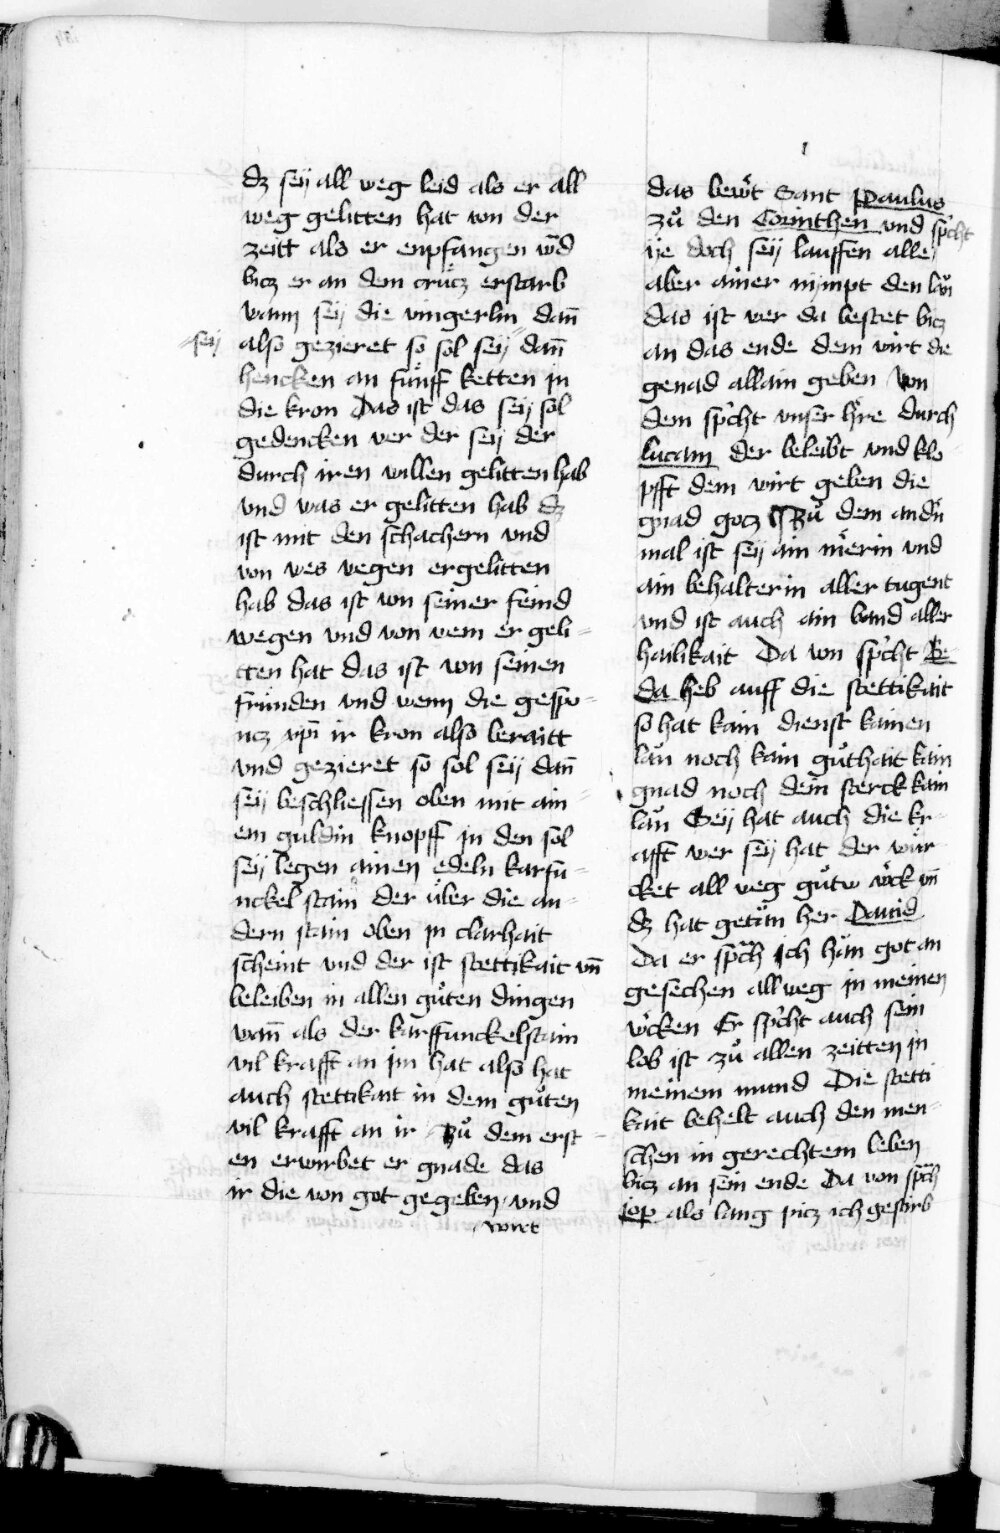 dz seÿ all weg leid als er all
weg gelitten hat von der
zeitt als er enpfangen wd̄
bicz er an dem crűcz erstarb
wann seÿ die vingerlin dan̄
=seÿ
also gezieret so sol seÿ dan̄
hencken an fűnff ketten jn
die kron Das ist das seÿ sol
gedencken wer der seÿ der
durch iren willen gelitten hab
vnd was er gelitten hab dz
ist mit den schachern vnd
von wes wegen er gelitten
hab das ist von seiner feind
wegen vnd von wem er geli=
tten hat das ist von seinen
fründen vnd wenn die gespo=
ncz xp̄i ir kron also beraitt
vnd gezieret so sol seÿ dan̄
seÿ beschliessen oben mit ain=
em guldin knopff jn den sol
seÿ legen ainen edeln karfu=
nckel stain der über die an=
dern stain oben jn clarhait
scheint vnd der ist stettikait vn̄
beleiben in allen gůten dingen
wan̄ als der karffunckelstain
vil krafft an jm hat also hat
auch stettikait in dem gůten
vil krafft an ir Zů dem erst=
en erwirbet er gnade das
ir die von got gegeben vnd
wirt
das bewőt Sant Paulus
zů den Corinthen vnd sp̄cht
ÿe doch seÿ lauffen alle
aber ainer nÿmpt den lőn
das ist wer da bestet bicz
an das ende dem wirt die
genad allain geben Von
dem sp̄cht vnser h̄re durch
lucam der beleibt vnd klo=
pfft dem wirt geben die
gnad gotz ¶ Zů dem andn̄
mal ist seÿ ain merin vnd
ain behalterin aller tugent
vnd ist auch ain band aller
hailikait Da von sp̄cht Be=
da heb auff die stettikait
so hat kain dienst kainen
lőn noch kain gůthait kain
gnad noch dein sterck kain
lőn Seÿ hat auch die kr=
afft wer seÿ hat der wűr=
cket all weg gůte wőck vn̄
dz hat getǎn her Dauid
Da er sp̄ch ich hǎn got an
gesechen allweg jn meinen
wőcken Er sp̄cht auch sein
lob ist zů allen zeitten jn
meinem mund Die stetti
kait behelt auch den men=
schen in gerechtem leben
bicz an sein ende Da von sp̄ch
iop als lang picz ich gestirb